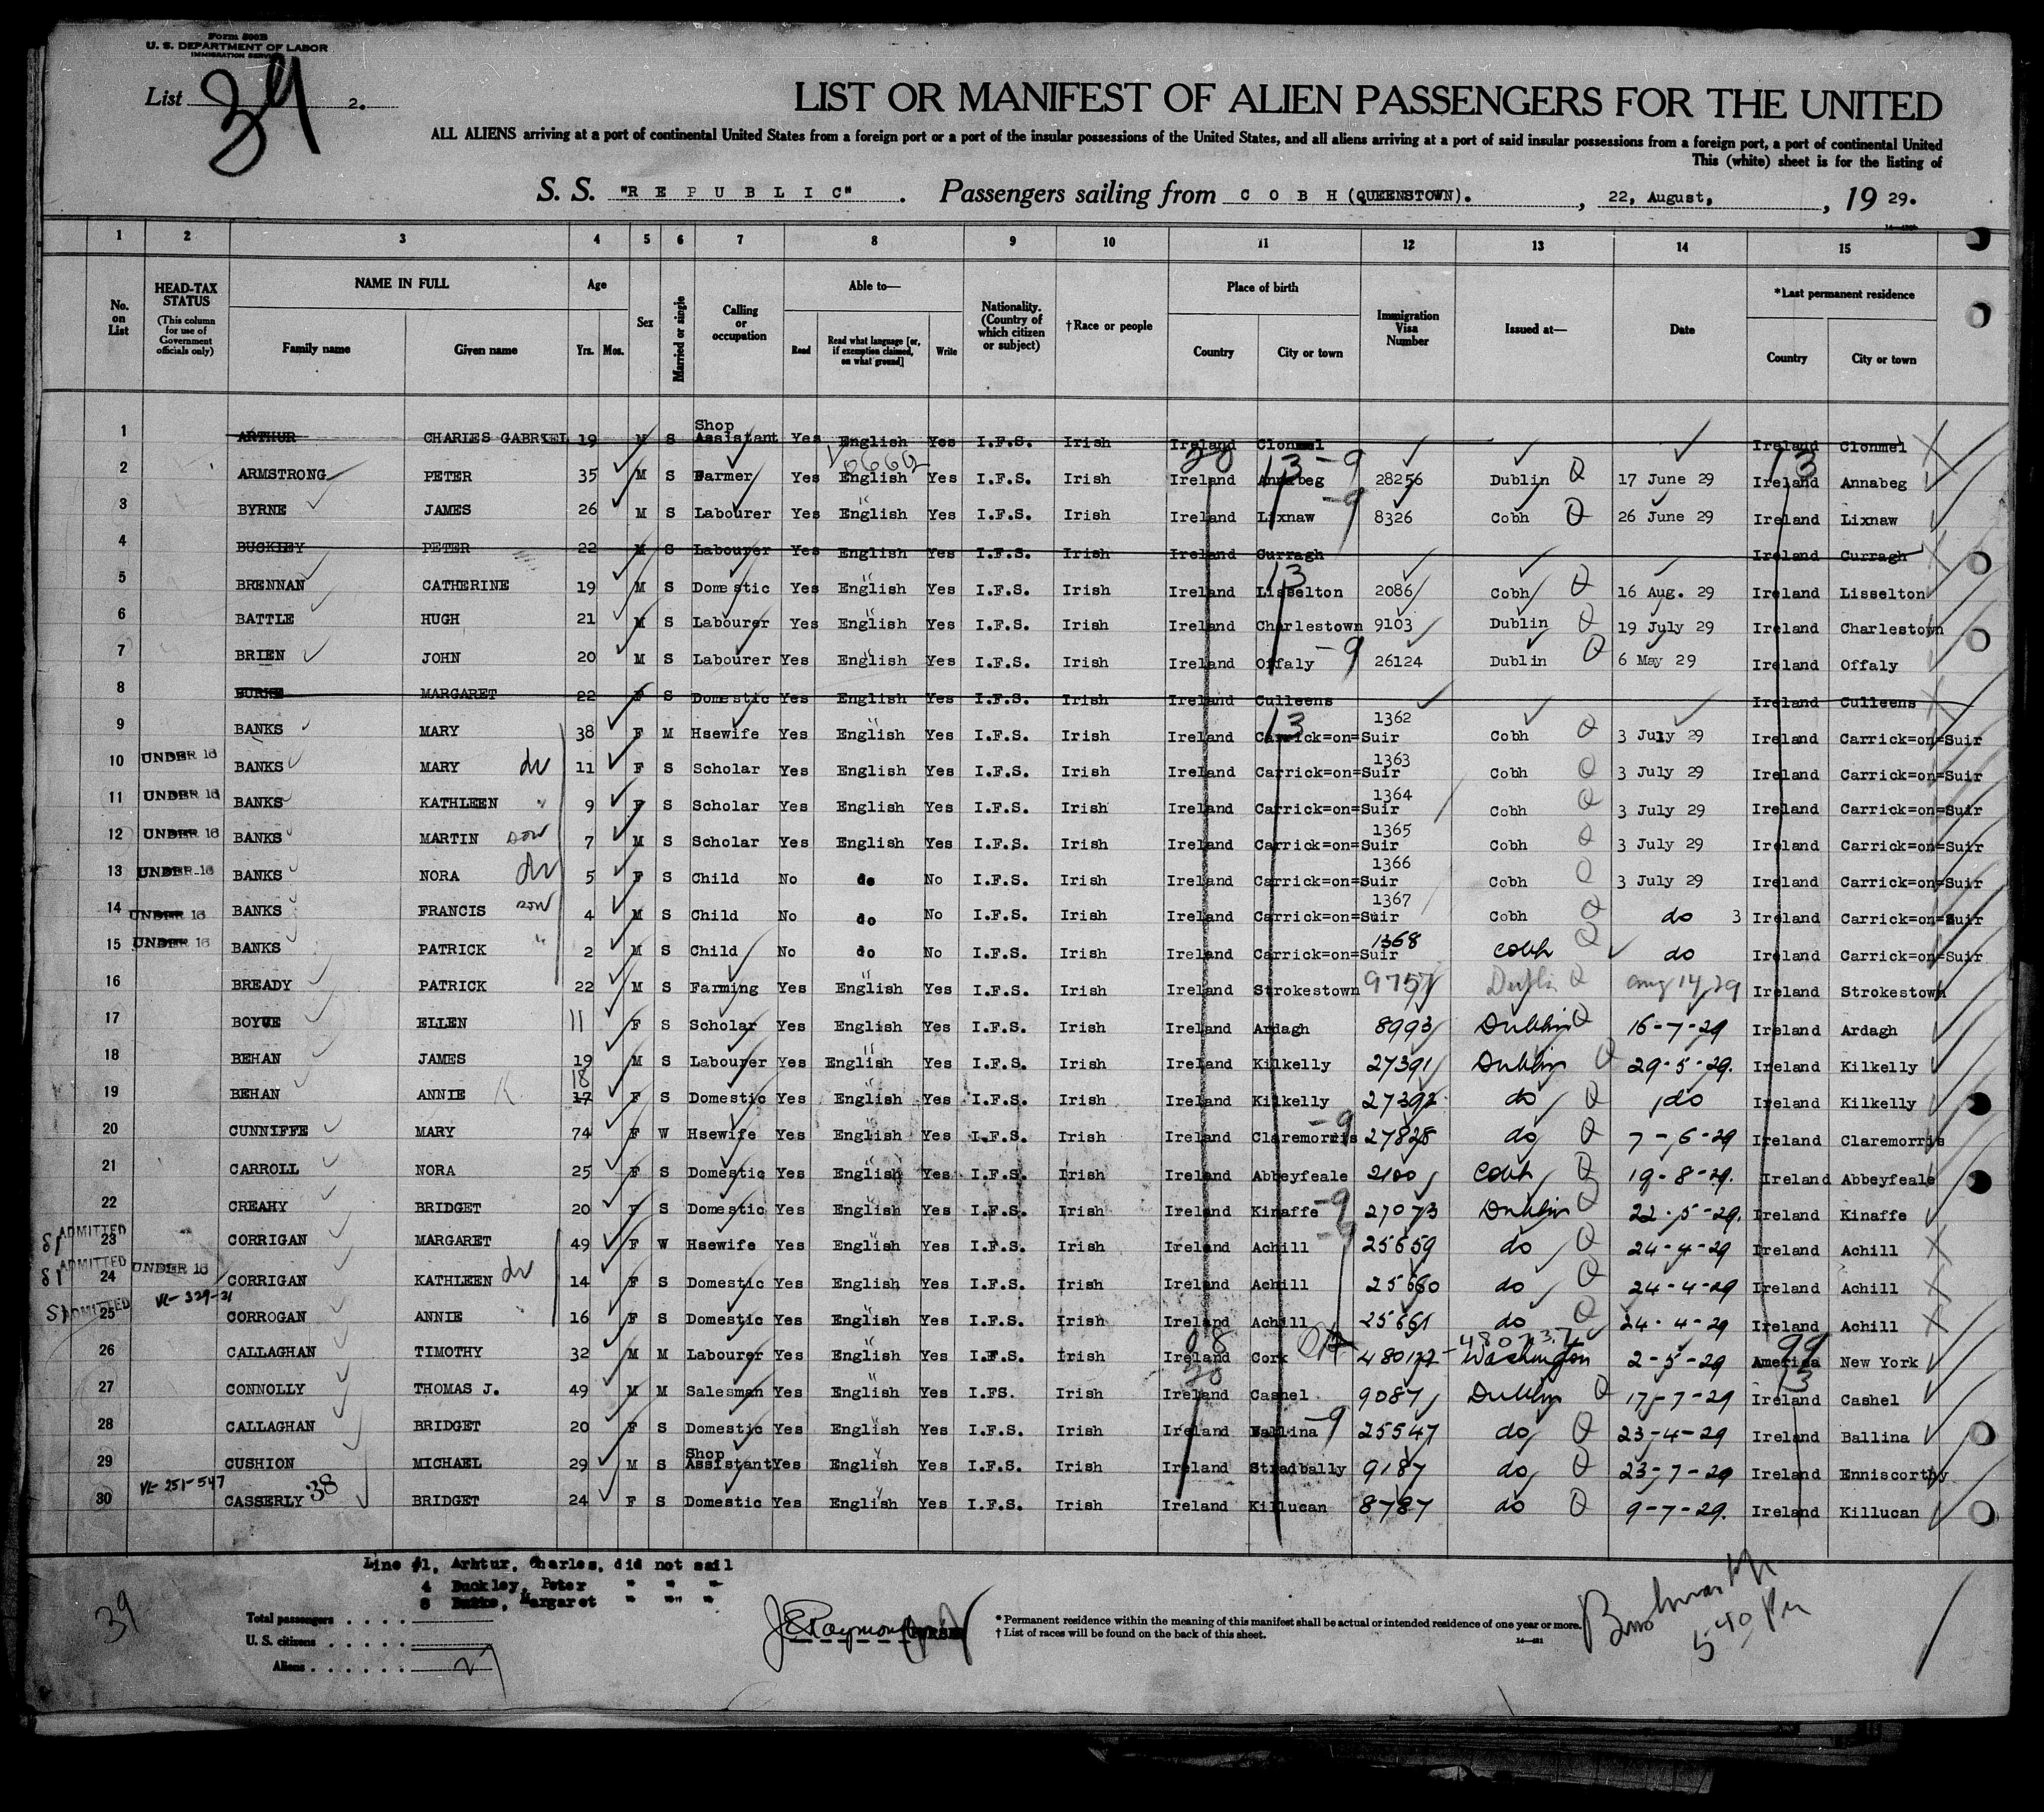 Form 500B
U. S. DEPARTMENT OF LABOR
IMMIGRATION SERVICE
List 39 2.
LIST OR MANIFEST OF ALIEN PASSENGERS FOR THE UNITED
ALL ALIENS arriving at a port of continental United States from a foreign port or a port of the insular possessions of the United States, and all aliens arriving at a port of said insular possessions from a foreign port, a port of continental United
This (white) sheet is for the listing of
S. S. "REPUBLIC". Passengers sailing from COBH (QUEENSTOWN). , 22, August, , 19 29.
1 2 3 4 5 6 7 8 9 10 11 12 13 14 15
No. on List HEAD-TAX STATUS (This column for use of Government officials only) NAME IN FULL Family name Given name Age Yrs. Mos. Sex Married or single Calling or occupation Able to— Read Read what language [or, if exemption claimed, on what ground] Write Nationality. (Country of which citizen or subject) †Race or people Place of birth Country City or town Immigration Visa Number Issued at— Date *Last permanent residence Country City or town
1 ARTHUR CHARLES GABRIEL 19 M S Shop Assistant Yes English Yes I.F.S. Irish Ireland Clonmel Ireland Clonmel
2 ARMSTRONG PETER 35 M S Farmer Yes English Yes I.F.S. Irish Ireland Annabeg 28256 Dublin 17 June 29 Ireland Annabeg
3 BYRNE JAMES 26 M S Labourer Yes English Yes I.F.S. Irish Ireland Lixnaw 8326 Cobh 26 June 29 Ireland Lixnaw
4 BUCKLEY PETER 22 M S Labourer Yes English Yes I.F.S. Irish Ireland Curragh Ireland Curragh
5 BRENNAN CATHERINE 19 M S Domestic Yes English Yes I.F.S. Irish Ireland Lisselton 2086 Cobh 16 Aug. 29 Ireland Lisselton
6 BATTLE HUGH 21 M S Labourer Yes English Yes I.F.S. Irish Ireland Charlestown 9103 Dublin 19 July 29 Ireland Charlestown
7 BRIEN JOHN 20 M S Labourer Yes English Yes I.F.S. Irish Ireland Offaly 26124 Dublin 6 May 29 Ireland Offaly
8 BURKE MARGARET 22 F S Domestic Yes English Yes I.F.S. Irish Ireland Culleens Ireland Culleens
9 BANKS MARY 38 F M Hsewife Yes English Yes I.F.S. Irish Ireland Carrick=on=Suir 1362 Cobh 3 July 29 Ireland Carrick=on=Suir
10 UNDER 16 BANKS MARY 11 F S Scholar Yes English Yes I.F.S. Irish Ireland Carrick=on=Suir 1363 Cobh 3 July 29 Ireland Carrick=on=Suir
11 UNDER 16 BANKS KATHLEEN " 9 F S Scholar Yes English Yes I.F.S. Irish Ireland Carrick=on=Suir 1364 Cobh 3 July 29 Ireland Carrick=on=Suir
12 UNDER 16 BANKS MARTIN son 7 M S Scholar Yes English Yes I.F.S. Irish Ireland Carrick=on=Suir 1365 Cobh 3 July 29 Ireland Carrick=on=Suir
13 UNDER 16 BANKS NORA 5 F S Child No do No I.F.S. Irish Ireland Carrick=on=Suir 1366 Cobh 3 July 29 Ireland Carrick=on=Suir
14 UNDER 16 BANKS FRANCIS son 4 M S Child No do No I.F.S. Irish Ireland Carrick=on=Suir 1367 Cobh do 3 Ireland Carrick=on=Suir
15 UNDER 16 BANKS PATRICK " 2 M S Child No do No I.F.S. Irish Ireland Carrick=on=Suir 1368 Cobh do Ireland Carrick=on=Suir
16 BREADY PATRICK 22 M S Farming Yes English Yes I.F.S. Irish Ireland Strokestown 9757 Dublin Aug 14, 29 Ireland Strokestown
17 BOYUE ELLEN 11 F S Scholar Yes English Yes I.F.S. Irish Ireland Ardagh 8993 Dublin 16-7-29 Ireland Ardagh
18 BEHAN JAMES 19 M S Labourer Yes English Yes I.F.S. Irish Ireland Kilkelly 27391 Dublin 29-5-29. Ireland Kilkelly
19 BEHAN ANNIE 18 17 F S Domestic Yes English Yes I.F.S. Irish Ireland Kilkelly 27392 do do Ireland Kilkelly
20 CUNNIFFE MARY 74 F W Hsewife Yes English Yes I.F.S. Irish Ireland Claremorris 27828 do 7-6-29 Ireland Claremorris
21 CARROLL NORA 25 F S Domestic Yes English Yes I.F.S. Irish Ireland Abbeyfeale 2100 Cobh 19-8-29. Ireland Abbeyfeale
22 CREAHY BRIDGET 20 F S Domestic Yes English Yes I.F.S. Irish Ireland Kinaffe 27073 Dublin 22-5-29. Ireland Kinaffe
ADMITTED 23 CORRIGAN MARGARET 49 F W Hsewife Yes English Yes I.F.S. Irish Ireland Achill 25659 do 24-4-29 Ireland Achill
ADMITTED 24 UNDER 16 CORRIGAN KATHLEEN 14 F S Domestic Yes English Yes I.F.S. Irish Ireland Achill 25660 do 24-4-29 Ireland Achill
ADMITTED 25 CORROGAN ANNIE 16 F S Domestic Yes English Yes I.F.S. Irish Ireland Achill 25661 do 24-4-29 Ireland Achill
26 CALLAGHAN TIMOTHY 32 M M Labourer Yes English Yes I.F.S. Irish Ireland Cork Washington 2-5-29 America New York
27 CONNOLLY THOMAS J. 49 M M Salesman Yes English Yes I.FS. Irish Ireland Cashel 9087 Dublin 17-7-29 Ireland Cashel
28 CALLAGHAN BRIDGET 20 F S Domestic Yes English Yes I.F.S. Irish Ireland Ballina 25547 do 23-4-29 Ireland Ballina
29 CUSHION MICHAEL 29 M S Shop Assistant Yes English Yes I.F.S. Irish Ireland Stradbally 9187 do 23-7-29 Ireland Enniscorthy
30 VL-251-547 CASSERLY 38 BRIDGET 24 F S Domestic Yes English Yes I.F.S. Irish Ireland Killucan 8787 do 9-7-29. Ireland Killucan
Line #1, Arhtur, Charles, did not sail
4 Buckley, Peter " " "
8 Burke, Margaret " " "
39
Total passengers . . . .
U. S. citizens . . . . .
Aliens . . . . . . 27
* Permanent residence within the meaning of this manifest shall be actual or intended residence of one year or more.
† List of races will be found on the back of this sheet.
540 Pm